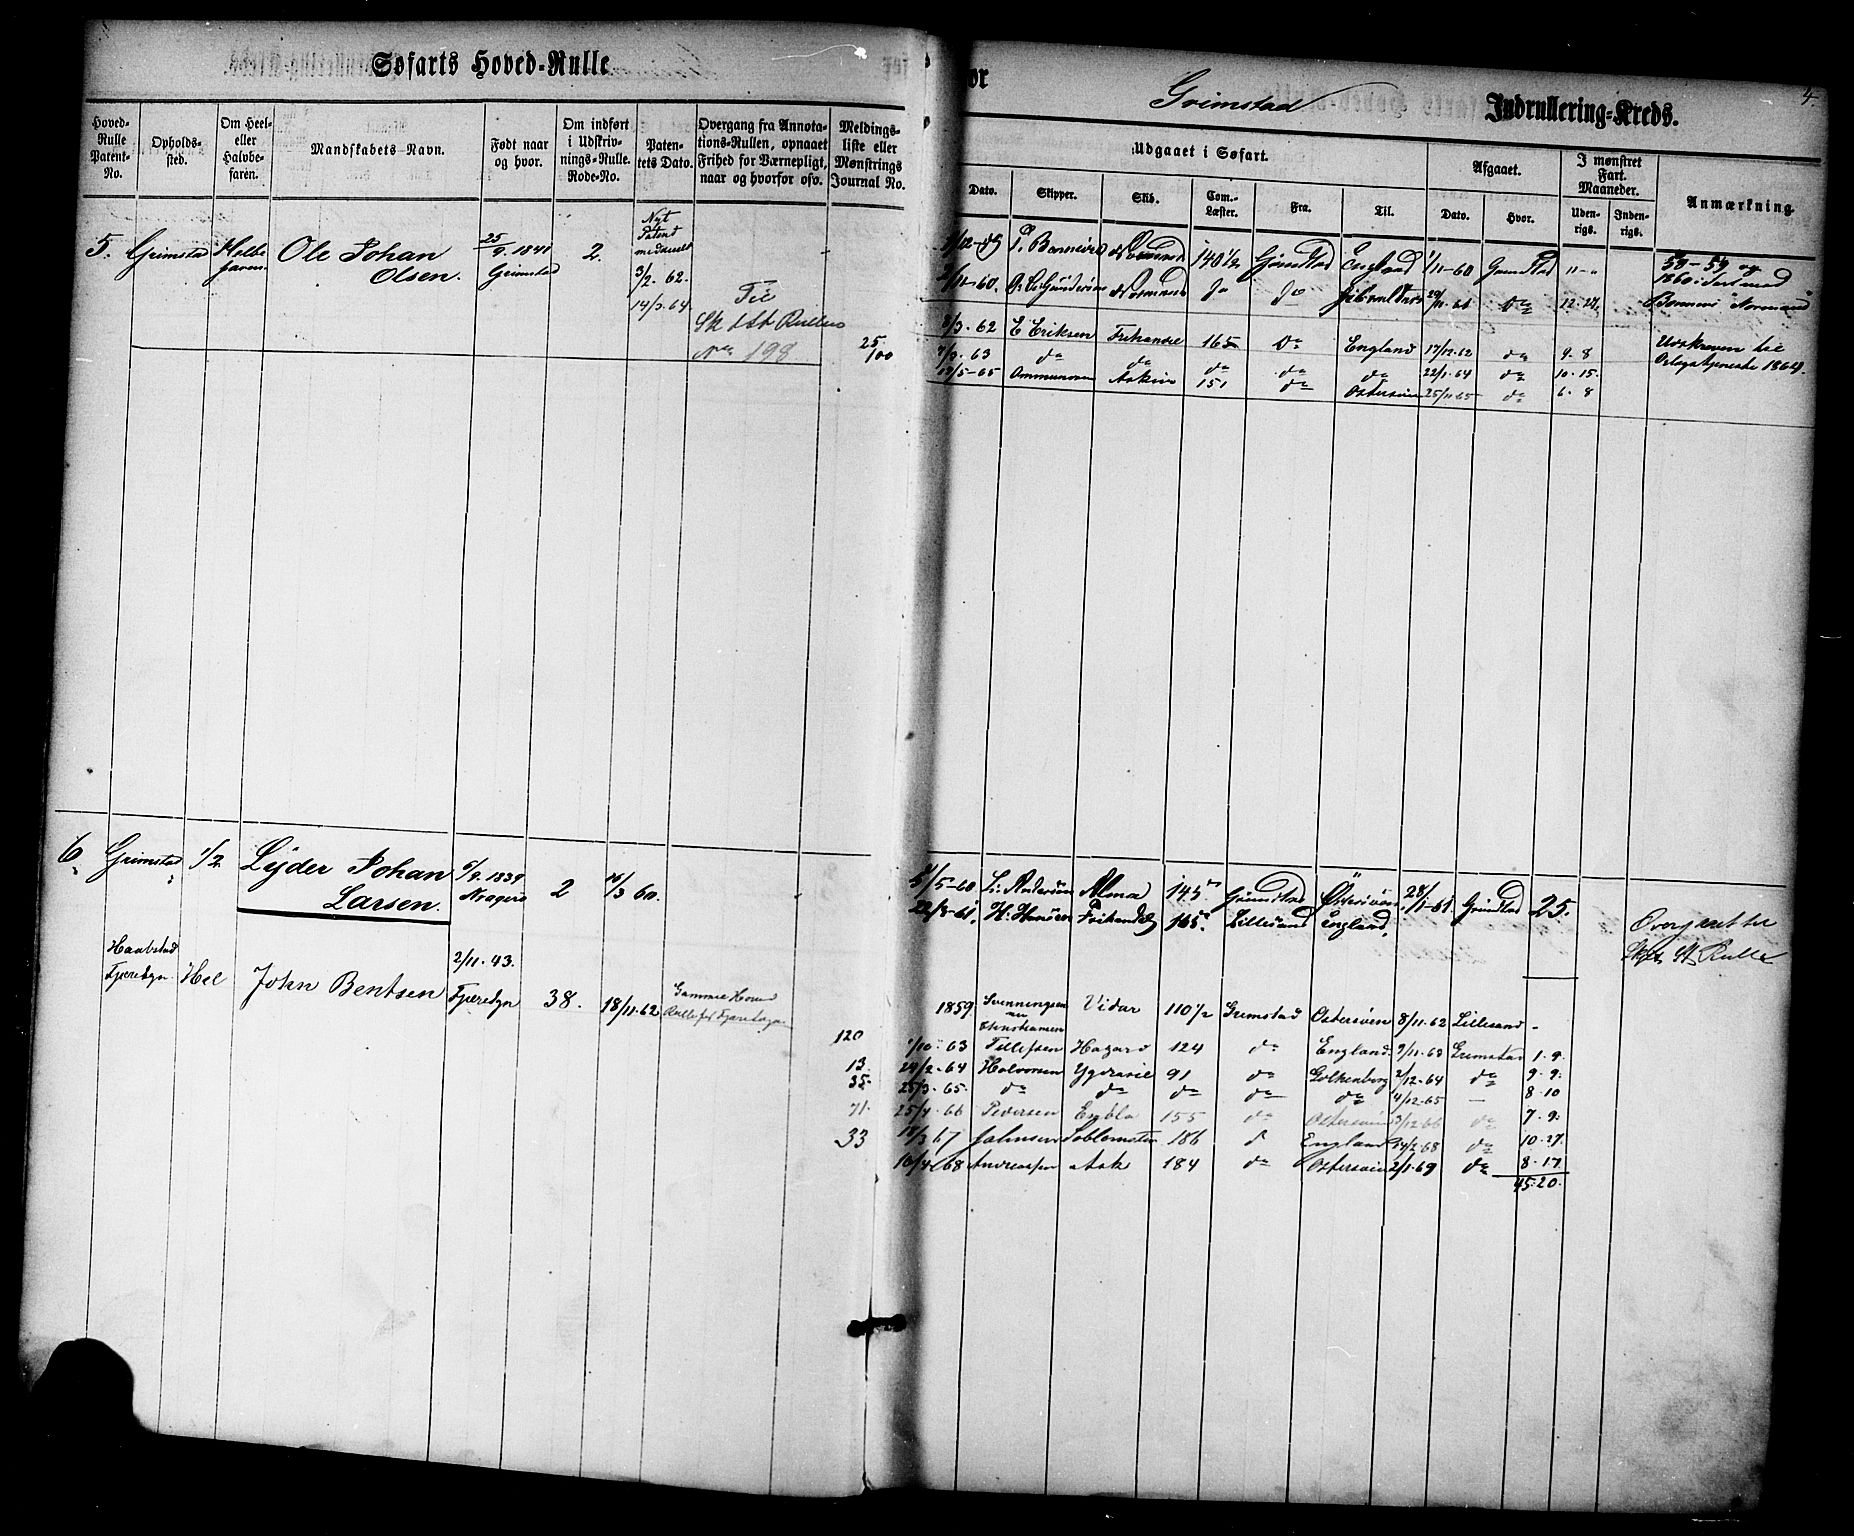 Søfarts Hoved-Rulle
Hoved-Rulle Patent-No. Opholds-sted. Om Heel- eller Halvbe-faren. Mandskabets Navn. Født naar og hvor. Om indført i Udskriv-nings-Rulle. Rode-No. Paten-tets Dato. Overgang fra Annota-tions-Rullen, opnaaet Frihed for Værnepligt, naar og hvorfor osv. Meldings-liste eller Mønstrings Journal No.
5. Grimstad Halbe faren Ole Johan Olsen. 25/9. 1841 Grimstad 2. Nyt Patent meddeelt 3/2. 62. 14/3. 64.
Til
Sk d St Rullen
No 198
25
100
6. Grimstad 1/2 Lyder Johan Larsen. 6/9. 1839 Kragerø 2 16/3 60.
Haabstad Fjæredgn. Hel John Bentsen 2/11. 43. Fjæredgn 38. 18/11.62 Gammel Hoved
120
13.
35.
71.
33
for
Grimstad
Indrullering-Kreds.
4
Udgaaet i Søfart. Afgaaet. I mønstret Fart. Maaneder. Anmærkning
Dato. Skipper. Skib. Com.-Læster. Fra. Til. Dato. Hvor. Uden-rigs. Inden-rigs.
Normand 140 1/2 Grimstad England 1/11-60 Grimstad
2/11-60. Normand do do 12.
8/3. 62 E Eriksen Frihandel 165 Do England 17/12.62 do 9. 8
7/3. 63 do do do do do 22/1.64 do 10. 15.
13/5-65 Ommundsen Askur 151 do Østersøen 25/11.65 do 6. 8
58-59 og
1860 i fart med
Udskreven til
Orlogstjeneste 1864.
5/5-60 Alma 145 Grimstad Østersøen 28/1-61. Grimstad 25.
22/8-61. H. Hansen Frihandel 165 Lillesand England.
Overført til
St Rulle
1859 Svenningsen Vidar 110 1/2 Grimstad Østersøen 8/11.62 Lillesand -
Christiansen
1/10. 63 Tellefsen Hazard 124 do England 9/11.63 Grimstad 1. 9.
24/2. 64 Halvorsen Ygdrasil 91 do 2/12.64 do 9. 9.
25/3. 65. do do do do do 4/12.65 — 8. 10
25/4. 66 Pedersen Embla 155 do Østersøen 3/12.66 do 7. 9.
18/3 67 Jahnsen 186 do England 24/2.68 do 10. 27.
10/4 68 Andreassen Ask 184 do Østersøen 2/1.69 do 8. 17
45. 20.